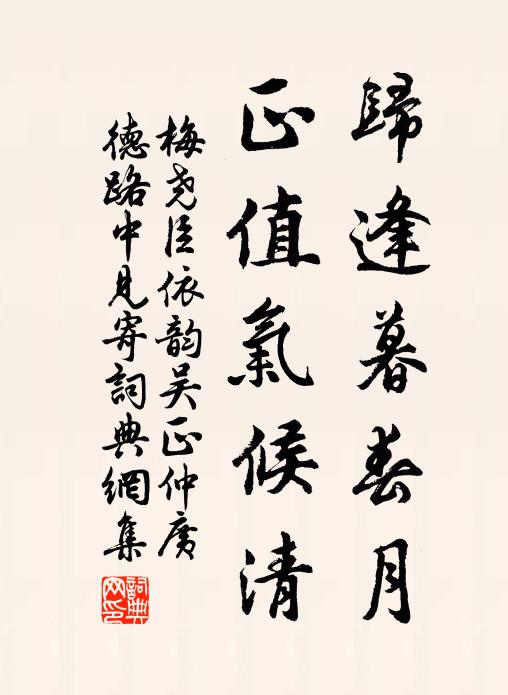 歸逢暮春月
正值氣候清
梅堯臣依韵吴正仲廣
德路中見寄詞典網集
詞典網印